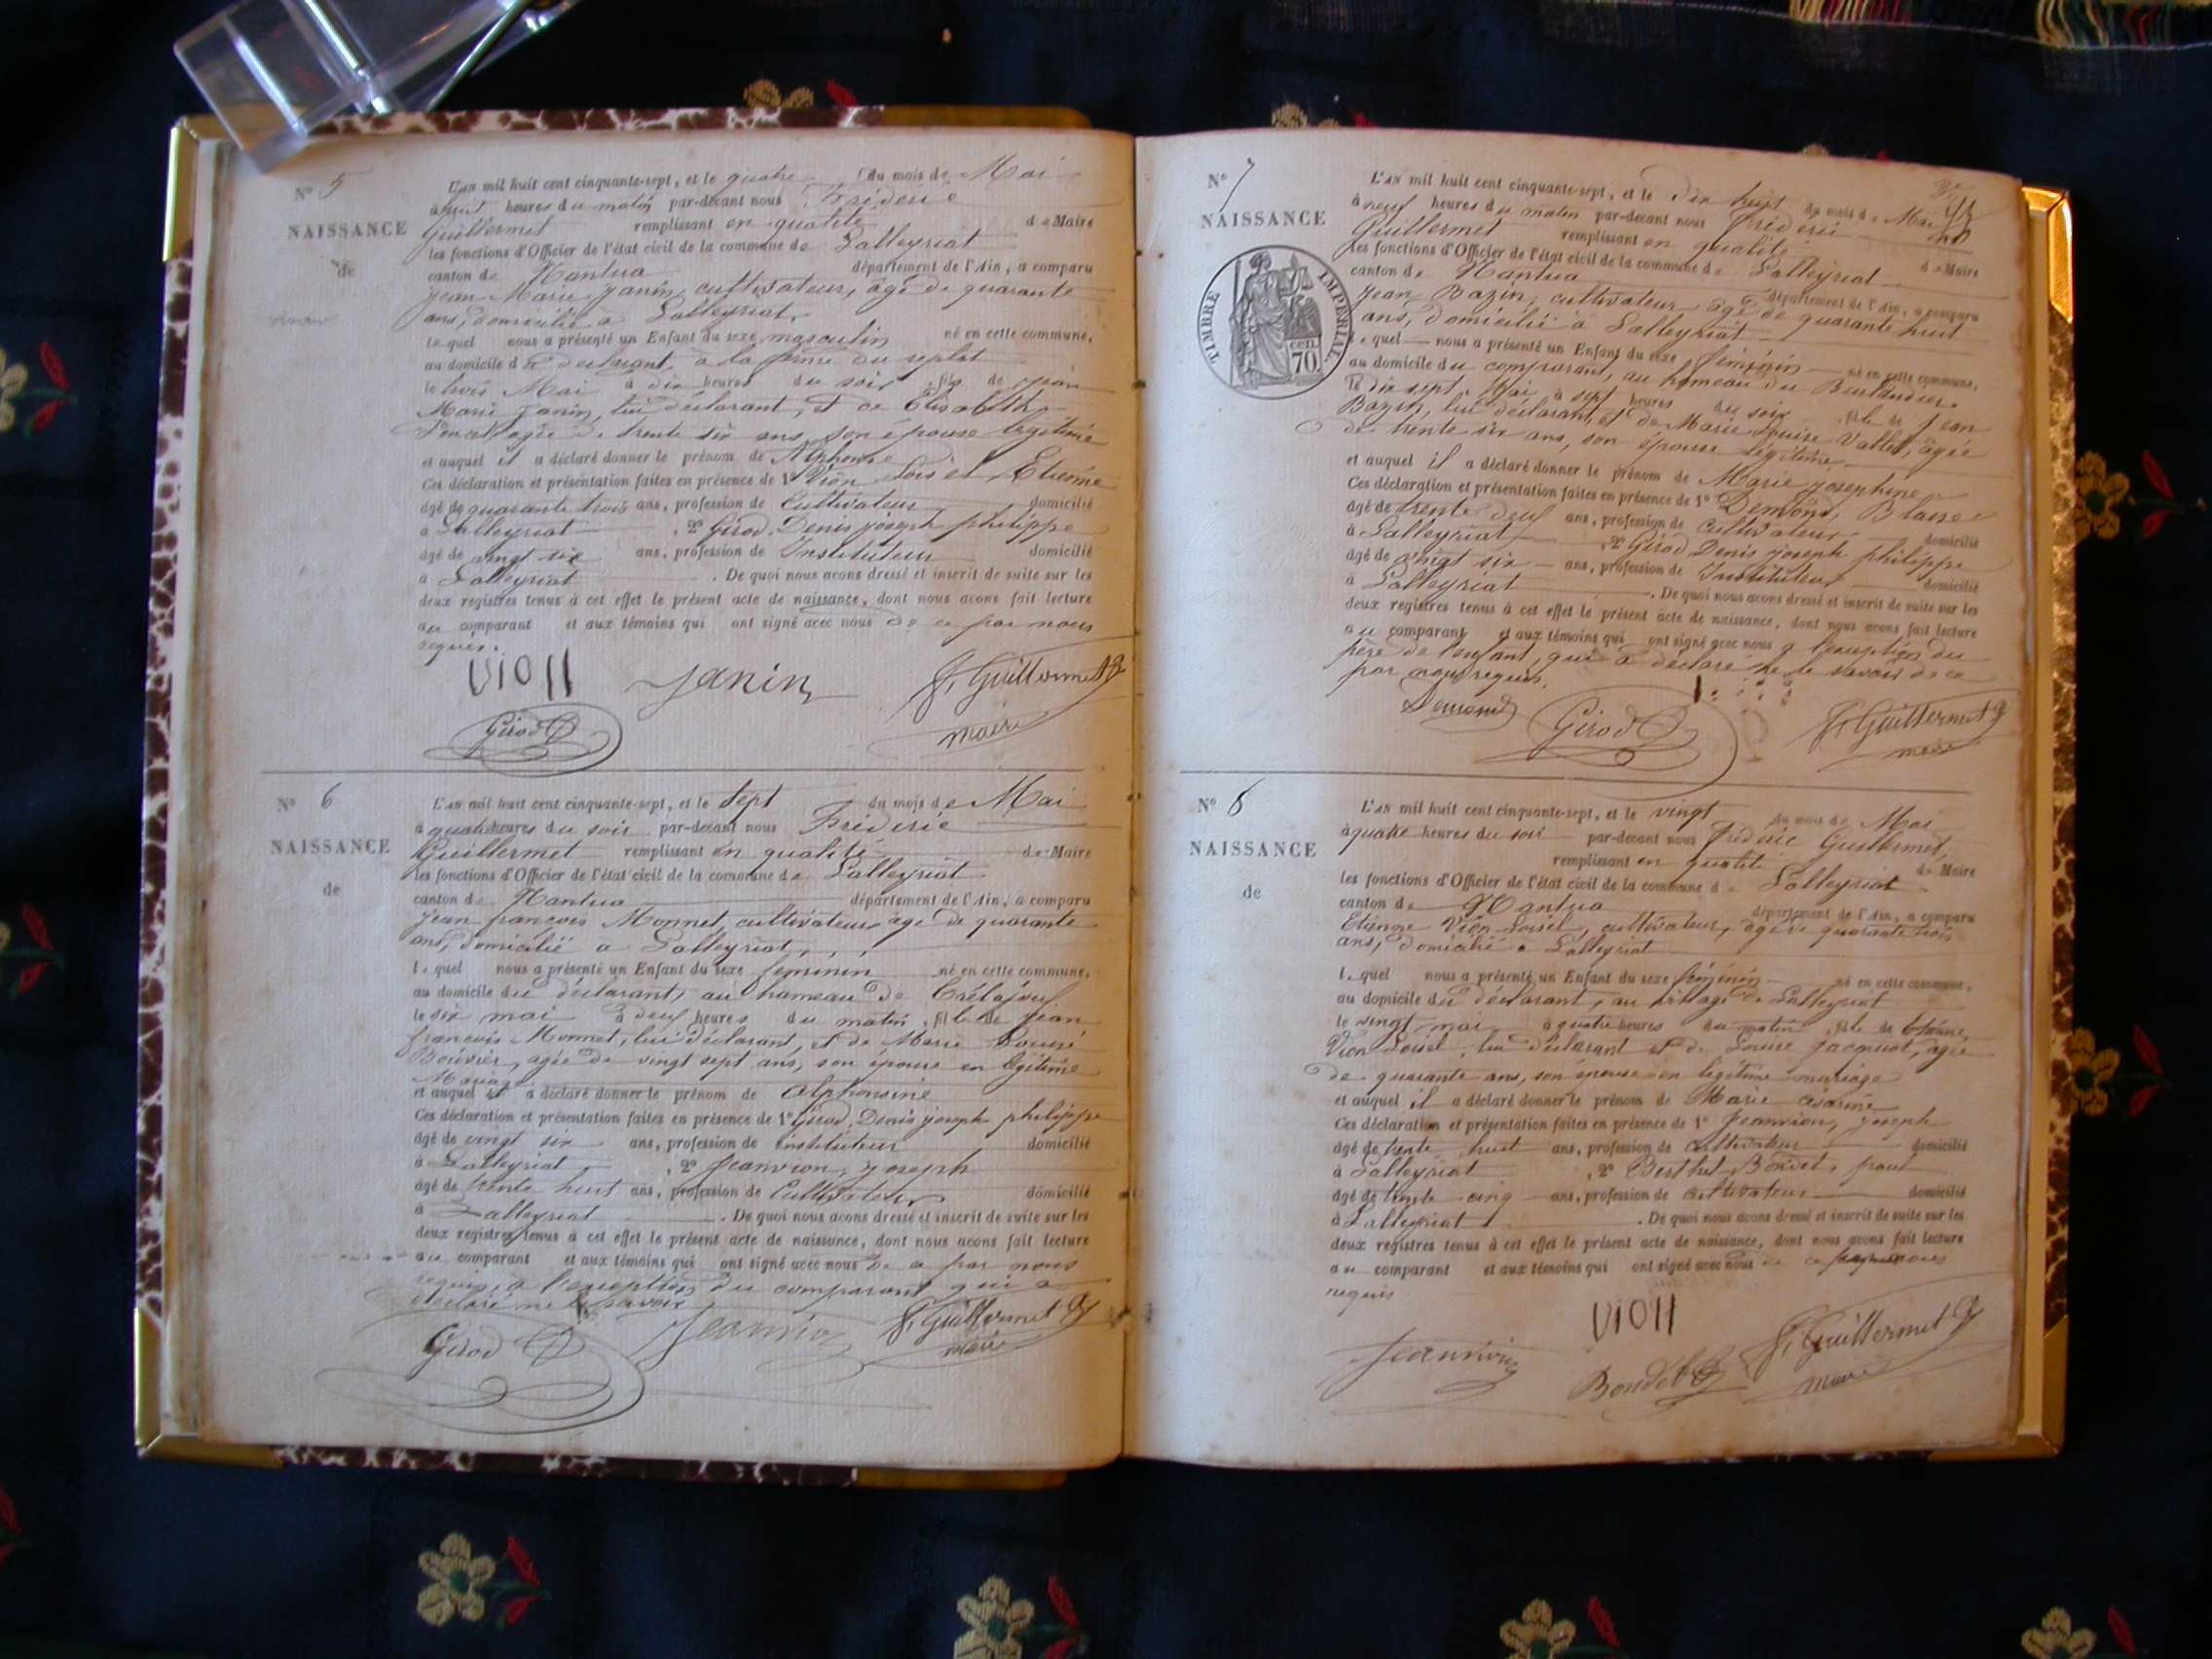 N° 5
NAISSANCE
de
L'an mil huit cent cinquante-sept, et le quatre du mois de Mai
à huit heures du matin par-devant nous Fréderic
Guillermet remplissant en qualité de Maire
les fonctions d'Officier de l'état civil de la commune de Lalleyriat
canton de Nantua département de l'Ain, a comparu
Jean Marie Janin, cultivateur, âgé de quarante
ans, domicilié à Lalleyriat,
lequel nous a présenté un Enfant du sexe masculin né en cette commune,
au domicile du déclarant, à la ferme du replat
le trois Mai à dix heures du soir, fils de Jean
Marie Janin, lui déclarant, et de Elisabeth
âgée de trente six ans, son épouse légitime
et auquel il a déclaré donner le prénom de Alphonse
Ces déclaration et présentation faites en présence de 1° Vion Loisel, Etienne
âgé de quarante trois ans, profession de Cultivateur domicilié
à Lalleyriat, 2° Girod, Denis joseph philippe
âgé de vingt six ans, profession de Instituteur domicilié
à Lalleyriat. De quoi nous avons dressé et inscrit de suite sur les
deux registres tenus à cet effet le présent acte de naissance, dont nous avons fait lecture
au comparant et aux témoins qui ont signé avec nous de ce par nous
requis.
Vion Janin F. Guillermet
Girod maire
N° 6
NAISSANCE
de
L'an mil huit cent cinquante-sept, et le sept du mois de Mai
à quatre heures du soir par-devant nous Fréderic
Guillermet remplissant en qualité de Maire
les fonctions d'Officier de l'état civil de la commune de Lalleyriat
canton de Nantua département de l'Ain, a comparu
Jean françois Monnet, cultivateur, âgé de quarante
ans, domicilié à Lalleyriat,
lequel nous a présenté un Enfant du sexe feminin né en cette commune,
au domicile du déclarant, au hameau de
le six mai à deux heures du matin, fille de Jean
françois Monnet, lui déclarant, et de Marie Louise
Bouvier, agée de vingt sept ans, son épouse en légitime
Mariage
et auquel il a déclaré donner le prénom de Alphonsine
Ces déclaration et présentation faites en présence de 1° Girod, Denis joseph philippe
âgé de vingt six ans, profession de instituteur domicilié
à Lalleyriat, 2° Jeanvion, Joseph
âgé de trente huit ans, profession de Cultivateur domicilié
à Lalleyriat. De quoi nous avons dressé et inscrit de suite sur les
deux registres tenus à cet effet le présent acte de naissance, dont nous avons fait lecture
au comparant et aux témoins qui ont signé avec nous de ce par nous
requis, à l'exception du comparant qui a
déclaré ne le savoir
Girod Jeanvion F. Guillermet
maire
N° 7
NAISSANCE
TIMBRE IMPÉRIAL
70 cen.
L'an mil huit cent cinquante-sept, et le dix huit du mois de Mai
à neuf heures du matin par-devant nous Fréderic
Guillermet remplissant en qualité de Maire
les fonctions d'Officier de l'état civil de la commune de Lalleyriat
canton de Nantua département de l'Ain, a comparu
Jean Bazin, cultivateur âgé de quarante huit
ans, domicilié à Lalleyriat
lequel nous a présenté un Enfant du sexe féminin né en cette commune,
au domicile du comparant, au hameau du Burlandier
le dix sept Mai à sept heures du soir, fille de Jean
Bazin, lui déclarant, et de Marie Louise Vallet, âgée
de trente six ans, son épouse légitime
et auquel il a déclaré donner le prénom de Marie josephine
Ces déclaration et présentation faites en présence de 1° Demond, Blaise
âgé de trente deux ans, profession de cultivateur domicilié
à Lalleyriat, 2° Girod Denis joseph philippe
âgé de vingt six ans, profession de Instituteur domicilié
à Lalleyriat. De quoi nous avons dressé et inscrit de suite sur les
deux registres tenus à cet effet le présent acte de naissance, dont nous avons fait lecture
au comparant et aux témoins qui ont signé avec nous à l'exception du
père de l'enfant, qui a déclaré ne le savoir de ce
par nous requis.
Demond Girod F. Guillermet
maire
N° 8
NAISSANCE
de
L'an mil huit cent cinquante-sept, et le vingt du mois de Mai
à quatre heures du soir par-devant nous Fréderic Guillermet,
remplissant en qualité de Maire
les fonctions d'Officier de l'état civil de la commune de Lalleyriat
canton de Nantua département de l'Ain, a comparu
Etienne Vion Loisel, cultivateur, âgé de quarante trois
ans, domicilié à Lalleyriat
lequel nous a présenté un Enfant du sexe féminin né en cette commune,
au domicile du déclarant, au village de Lalleyriat
le vingt mai à quatre heures du matin, fille de Etienne
Vion Loisel, lui déclarant et de Louise Jacquot, agée
de quarante ans, son épouse en légitime mariage
et auquel il a déclaré donner le prénom de Marie césarine
Ces déclaration et présentation faites en présence de 1° Jeanvion, joseph
âgé de trente huit ans, profession de cultivateur domicilié
à Lalleyriat, 2° Berthet Bondet, paul
âgé de trente cinq ans, profession de cultivateur domicilié
à Lalleyriat. De quoi nous avons dressé et inscrit de suite sur les
deux registres tenus à cet effet le présent acte de naissance, dont nous avons fait lecture
au comparant et aux témoins qui ont signé avec nous de ce par nous
requis
Vion
Jeanvion Bondet F. Guillermet
maire